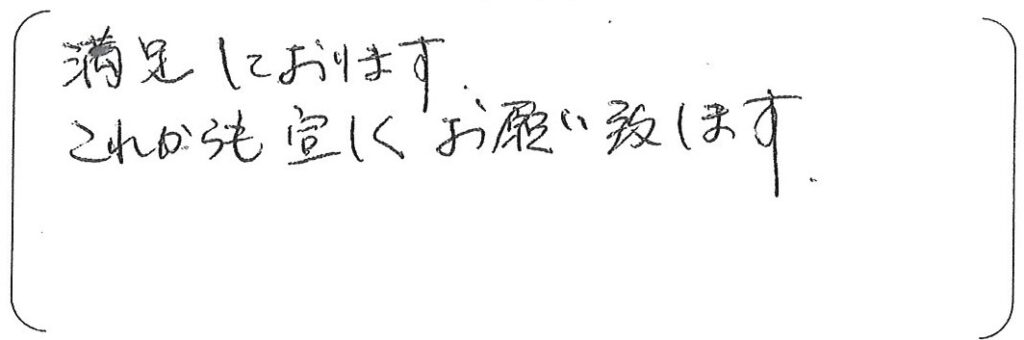 満足しております.
これからも宜しくお願い致します.